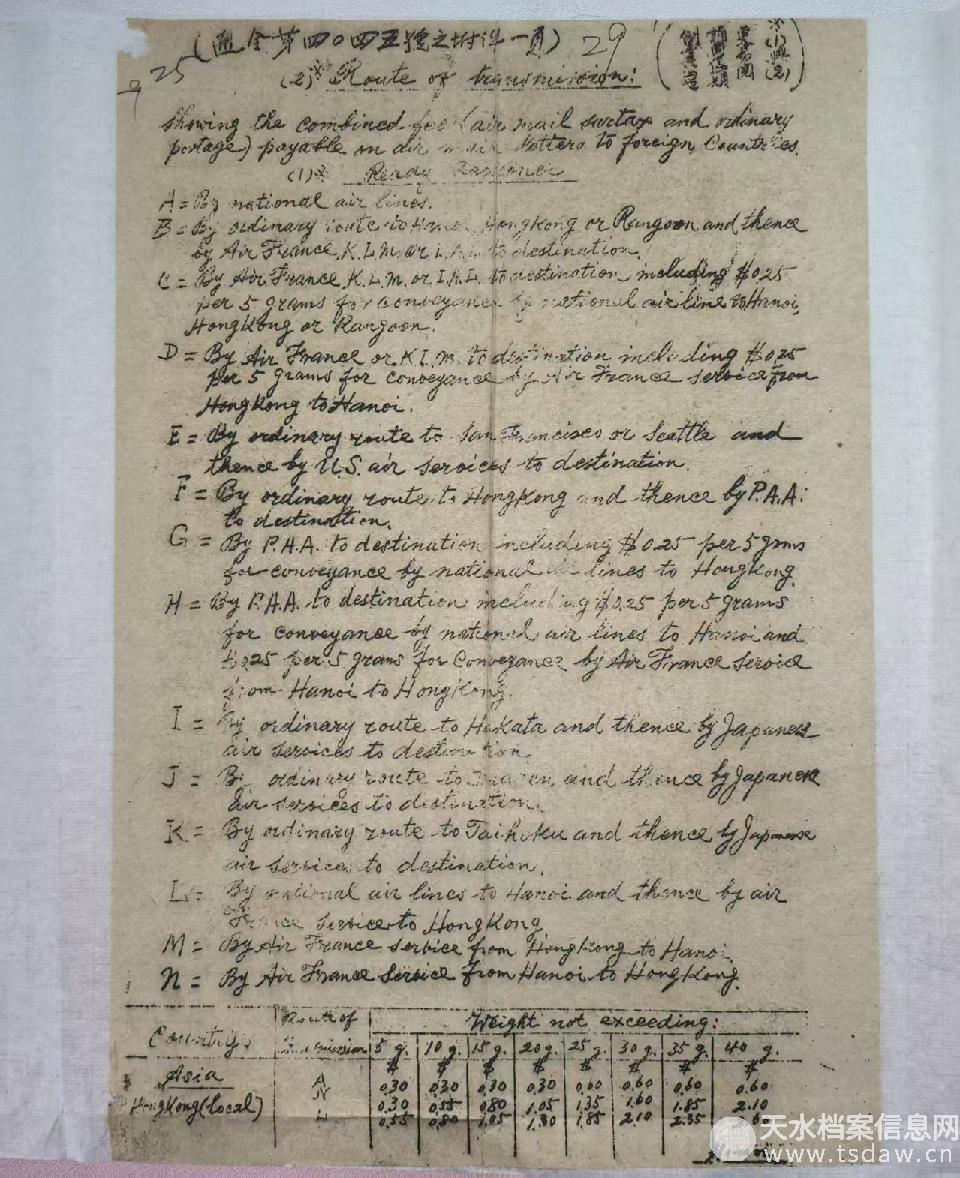 (通令第四〇四五號之附件一頁) 29
25
(2)※ Route of transmission:
※(1)與(2)
showing the combined fee (air mail surtax and ordinary
postage) payable on air mail letters to foreign Countries.
(1)※ Ready Reckoner
A = By national air lines.
B = By ordinary route to Hanoi, HongKong or Rangoon and thence
by Air France, K.L.M. or I.A.L. to destination.
C = By Air France, K.L.M. or I.A.L. to destination including $0.25
per 5 grams for conveyance by national air line to Hanoi,
HongKong or Rangoon.
D = By Air France or K.L.M. to destination including $0.25
per 5 grams for conveyance by Air France service from
HongKong to Hanoi.
E = By ordinary route to San Francisco or Seattle and
thence by U.S. air services to destination.
F = By ordinary route to HongKong and thence by P.A.A.
to destination.
G = By P.A.A. to destination including $0.25 per 5 grms
for conveyance by national air lines to HongKong.
H = By P.A.A. to destination including $0.25 per 5 grams
for conveyance by national air lines to Hanoi and
$0.25 per 5 grams for Conveyance by Air France Service
from Hanoi to HongKong.
I = By ordinary route to Hakata and thence by Japanese
air services to destination.
J = By ordinary route to and thence by Japanese
air services to destination.
K = By ordinary route to Taihoku and thence by Japanese
air services to destination.
L = By national air lines to Hanoi and thence by air
France service to HongKong
M = By Air France service from HongKong to Hanoi.
N = By Air France Service from Hanoi to HongKong.
Country Route of Transmission Weight not exceeding:
5 g. 10 g. 15 g. 20 g. 25 g. 30 g. 35 g. 40 g.
$ $ $ $ $ $ $ $
Asia A 0.30 0.30 0.30 0.30 0.60 0.60 0.60 0.60
HongKong (local) N 0.30 0.55 0.80 1.05 1.35 1.60 1.85 2.10
L 0.55 0.80 1.05 1.30 1.85 2.10 2.35
天水档案信息网
www.tsdaw.cn